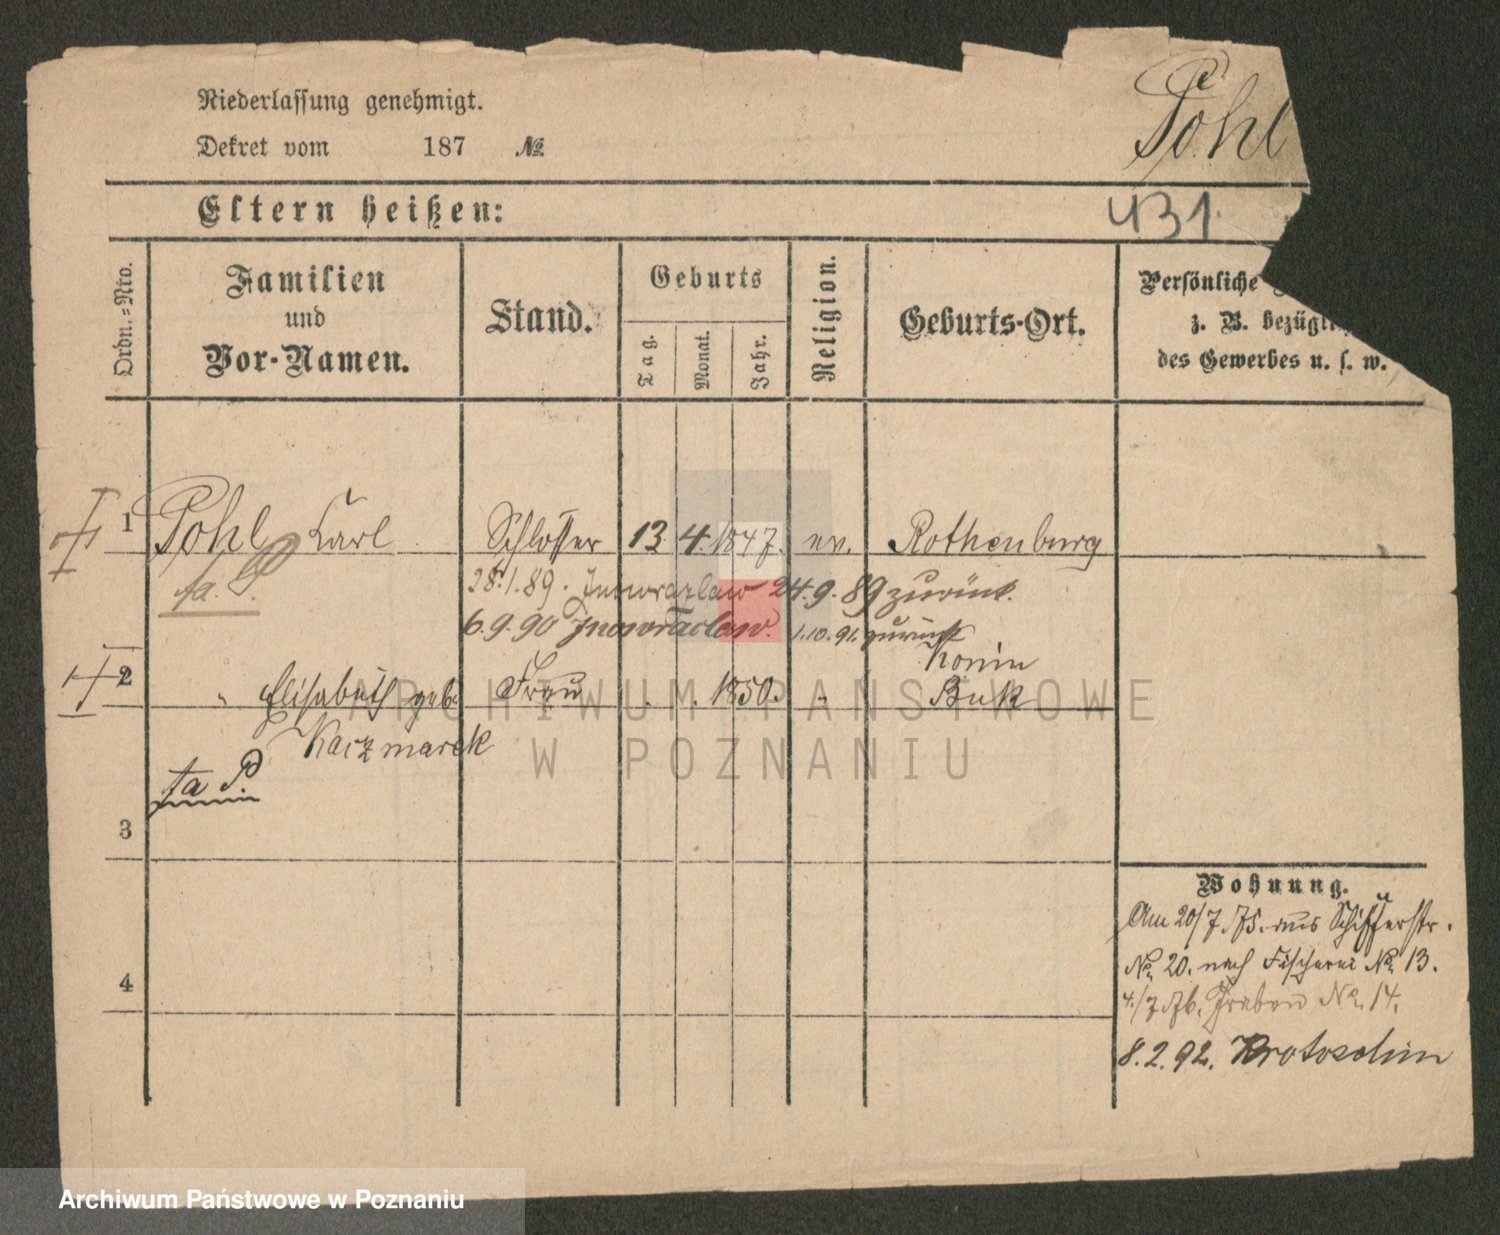 Niederlassung genehmigt.
Dekret vom 187 №
Pohl
Eltern heißen:
431.
Ordn.-Nro.
Familien
und
Vor-Namen.
Stand.
Geburts
Tag.
Monat.
Jahr.
Religion.
Geburts-Ort.
Persönliche
z. B. bezügl
des Gewerbes u. s. w.
1 Pohl Karl Schlosser 13. 4. 1847. ev. Rothenburg
28.1.89. Inowrazlaw 24.9.89 zurück.
fa. P.
6.9.90 Inowraclaw. 1.10.91. zurück
Konin
2 " Elisabeth geb. Frau . . 1850. " Buk
Kaczmarek
fa P.
3
4
Wohnung.
Am 20/7.75. aus Schifferstr.
No. 20. nach Fischerei No. 13.
4./7.76. Graben No. 14.
8.2.92. Krotoschin
ARCHIWUM PAŃSTWOWE
W POZNANIU
Archiwum Państwowe w Poznaniu